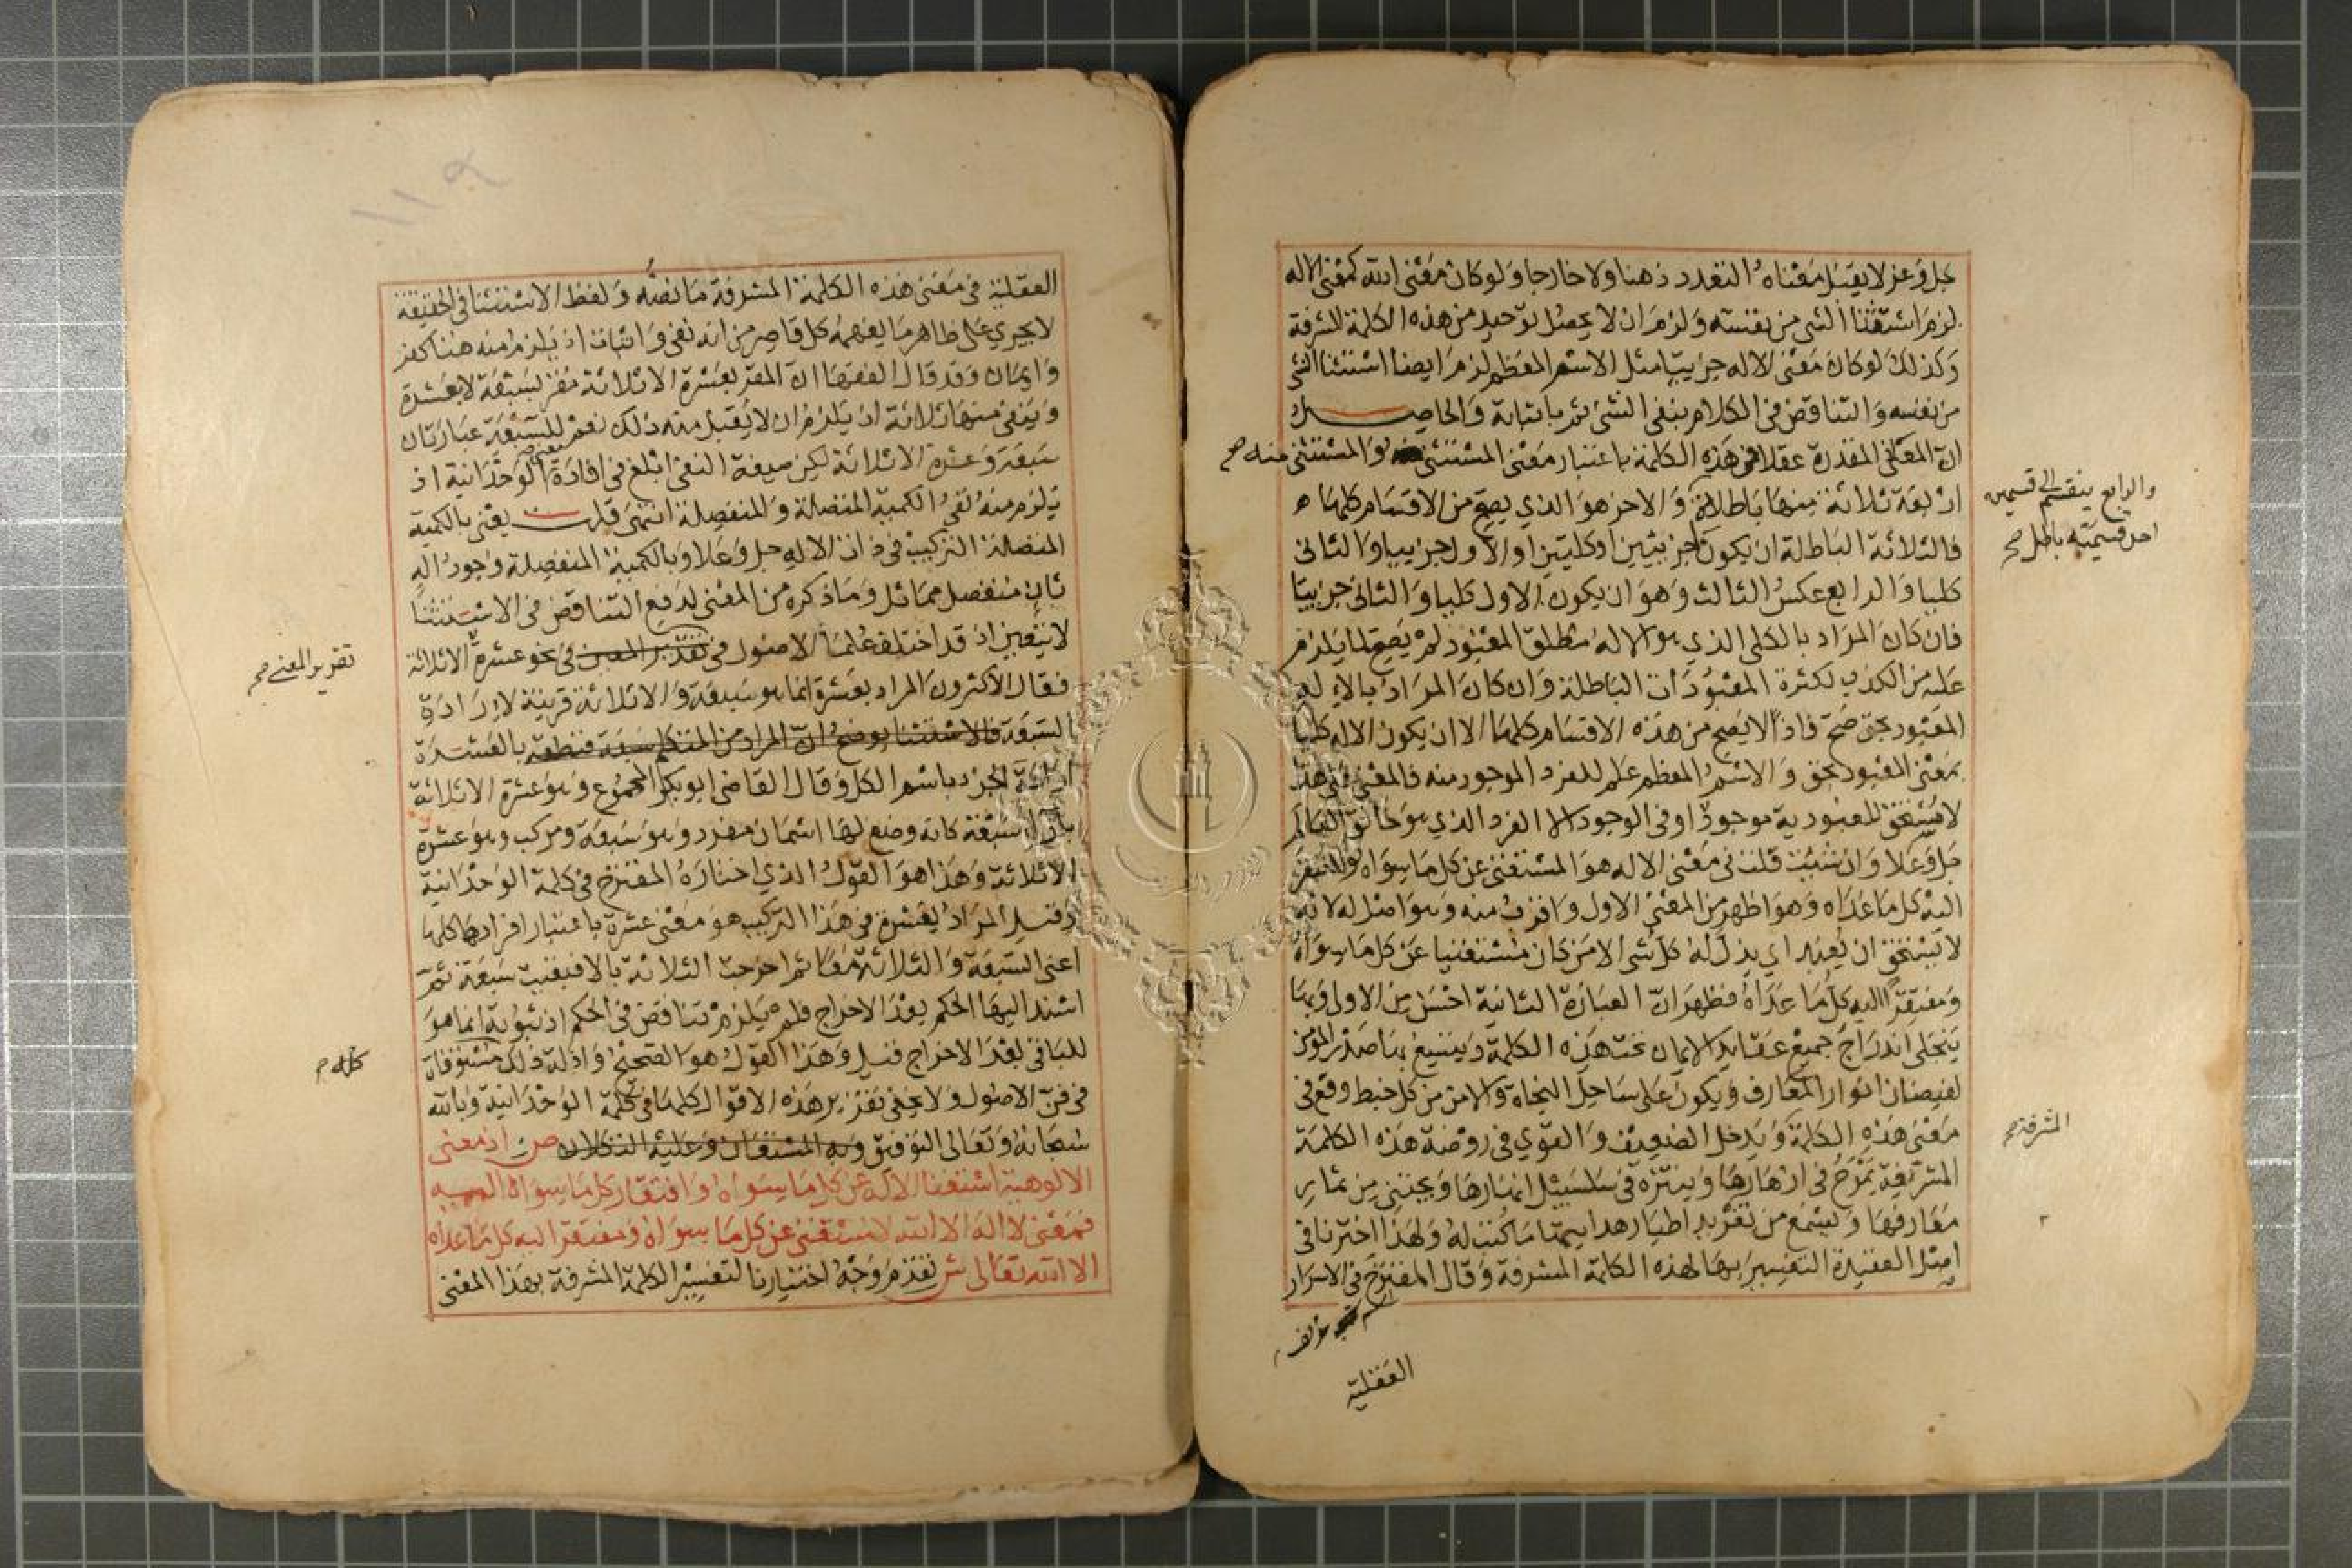 جل وعز لا يقبل معناه التعدد ذهنا ولا خارجا ولو كان معنى الله كمعنى الاله
لزم استثنا الشى من نفسه ولزم ان لا يحصل توحيد من هذه الكلمة المشرفة
وكذلك لو كان معنى الاله جزييا مثل الاسم المعظم لزم ايضا استثنا الشى
من نفسه والتناقض فى الكلام بنفى الشئ ثم باثباته والحاصل
ان المعانى المقدرة عقلا فى هذه الكلمة باعتبار معنى المستثنى والمستثنى منه صح
اربعة ثلاثة منها باطلة والاخر هو الذي يصح من الاقسام كلها
والرابع ينقسم الى قسمين
احد قسميه باطل صح
فالثلاثة الباطلة ان يكون جزييين اوكليين او الاول جزييا والثانى
كليا والرابع عكس الثالث وهو ان يكون الاول كليا والثانى جزييا
فان كان المراد بالكلى الذي هو الاله مطلق المعبود لم يصح لما يلزم
عليه من الكذب لكثرة المعبودات الباطلة وان كان المراد بالاله
المعبود بحق صح فاذا لا يصح من هذه الاقسام كلها الا ان يكون الاله كليا
بمعنى المعبود بحق والاسم المعظم علم للفرد الموجود منه فالمعنى على هذا
لا مستحق للعبودية موجود او فى الوجود الا الفرد الذي هو خالق العالم
جل وعلا وان شئت قلت فى معنى الاله هو المستغنى عن كل ما سواه والمفتقر
اليه كل ما عداه وهو اظهر من المعنى الاول واقرب منه وهو اصل له لانه
لا يستحق ان يعبد اي يذل له كل شى الا من كان مستغنيا عن كل ما سواه
ومفتقرا اليه كل ما عداه فظهر ان العبارة الثانية احسن من الاولى وبها
ينجلى اندراج جميع عقايد الايمان تحت هذه الكلمة ويتسع بها صدر المومن
لفيضان انوار المعارف ويكون على ساحل النجاة والامن من كل خبط وقع فى
معنى هذه الكلمة ويدخل الضعيف والقوي فى روضة هذه الكلمة
المشرفة صح
المشرفة يمرح فى ازهارها ويتنزه فى سلسبيل انهارها ويجتنى من ثمار
معارفها ويسمع من تغريد اطيار هدايتها ما كتب له ولهذا اخترنا فى
اصل العقيدة التفسير بها لهذه الكلمة المشرفة وقال المقترح فى الاسرار
العقلية
١١٩
العقلية فى معنى هذه الكلمة المشرفة ما نصه ولفظ الاستثنا فى الحقيقة
لا يجري على ظاهر ما يفهمه كل قاصر من انه نفى واثبات اذ يلزم منه هنا كفر
وايمان وقد قال الفقها ان المقر بعشرة الا ثلاثة مقر بسبعة لا بعشرة
وينفى منها ثلاثة اذ يلزم ان لا يقبل منه ذلك نعم للسبعة عبارتان
سبعة وعشرة الا ثلاثة لكن صيغة النفى ابلغ فى افادة معنى الوحدانية اذ
يلزم منه نفى الكمية المتصلة والمنفصلة انتهى قلت يعنى بالكمية
المتصلة التركيب فى ذات الاله جل وعلا وبالكمية المنفصلة وجود اله
ثان منفصل مماثل وما ذكره من المعنى لدفع التناقض فى الاستثنا
لا يتعين اذ قد اختلف علما الاصول فى تقدير المعنى فى نحو عشرة الا ثلاثة
تقرير المعنى صح
فقال الاكثرون المراد بعشرة انما هو سبعة والا ثلاثة قرينة لارادة
السبعة فالاستثنا يوضح ان المراد من المتكلم سبعة فنطقه بالعشرة
ارادة الجزء باسم الكل وقال القاضى ابو بكر المجموع وهو عشرة الا ثلاثة
بازا سبعة كانه وضع لها اسمان مفرد وهو سبعة ومركب وهو عشرة
الا ثلاثة وهذا هو القول الذي اختاره المقترح فى كلمة الوحدانية
وقيل المراد بعشرة فى هذا التركيب هو معنى عشرة باعتبار افرادها كلها
اعنى السبعة والثلاثة معا ثم اخرجت الثلاثة بالا فبقيت سبعة ثم
اسند اليها الحكم بعد الاخراج فلم يلزم تناقض فى الحكم اذ ثبوته انما هو
للباقى بعد الاخراج قيل وهذا القول هو الصحيح وادلة ذلك مستوفاة
فى فن الاصول ولا يخفى تقرير هذه الاقوال كلها فى كلمة الوحدانية وبالله
سبحانه وتعالى التوفيق وبه المستعان وعليه التكلان ص اذ معنى
الالوهية استغنا الاله عن كل ما سواه وافتقار كل ما سواه اليه
فمعنى لا اله الا الله لا مستغنى عن كل ما سواه ومفتقر اليه كل ما عداه
الا الله تعالى ش تقدم وجه اختيارنا لتفسير الكلمة المشرفة بهذا المعنى